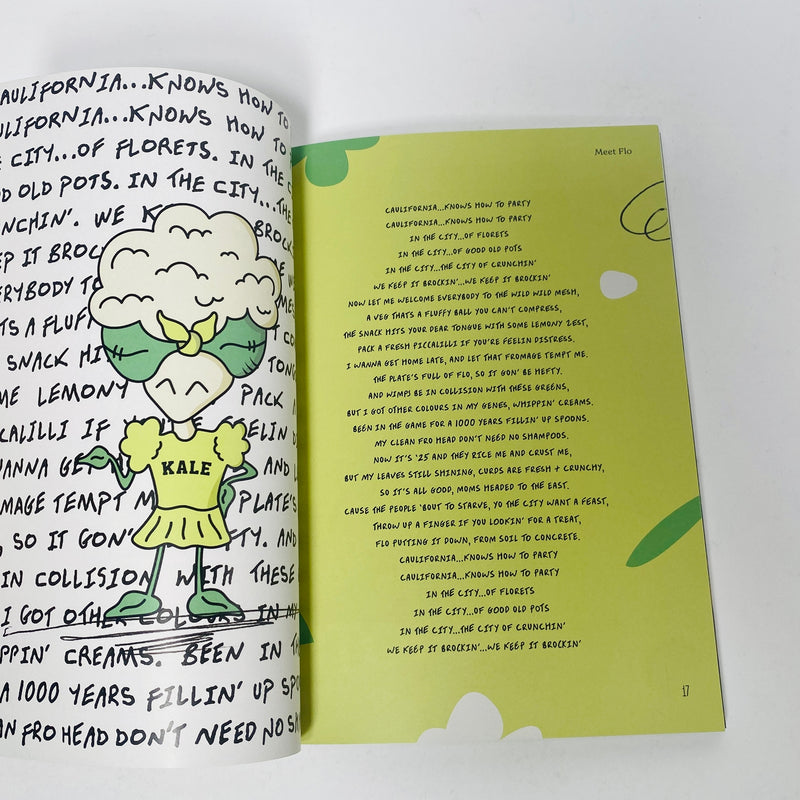 AULIFORNIA...KNOWS HOW TO
ULIFORNIA...KNOWS HOW TO
E CITY...OF FLORETS. IN THE C
OD OLD POTS. IN THE CITY...THE
NCHIN'. WE K BROCK
EP IT BROC WE
ERYBODY TO ME
TS A FLUFF CO
SNACK HI TONG
ME LEMONY PACK A
CALILLI IF FEELIN D
WANNA GE AND L
MAGE TEMPT M PLATE'S
, SO IT GON' FTY. AND
IN COLLISION WITH THESE
I GOT OTHER COLOURS IN MY
PPIN' CREAMS. BEEN IN T
A 1000 YEARS FILLIN' UP SPO
AN FRO HEAD DON'T NEED NO S
KALE
Meet Flo
CAULIFORNIA...KNOWS HOW TO PARTY
CAULIFORNIA...KNOWS HOW TO PARTY
IN THE CITY...OF FLORETS
IN THE CITY...OF GOOD OLD POTS
IN THE CITY...THE CITY OF CRUNCHIN'
WE KEEP IT BROCKIN'...WE KEEP IT BROCKIN'
NOW LET ME WELCOME EVERYBODY TO THE WILD WILD MESH,
A VEG THATS A FLUFFY BALL YOU CAN'T COMPRESS,
THE SNACK HITS YOUR DEAR TONGUE WITH SOME LEMONY ZEST,
PACK A FRESH PICCALILLI IF YOU'RE FEELIN DISTRESS.
I WANNA GET HOME LATE, AND LET THAT FROMAGE TEMPT ME.
THE PLATE'S FULL OF FLO, SO IT GON' BE HEFTY.
AND WIMPS BE IN COLLISION WITH THESE GREENS,
BUT I GOT OTHER COLOURS IN MY GENES, WHIPPIN' CREAMS.
BEEN IN THE GAME FOR A 1000 YEARS FILLIN' UP SPOONS.
MY CLEAN FRO HEAD DON'T NEED NO SHAMPOOS.
NOW IT'S '25 AND THEY RICE ME AND CRUST ME,
BUT MY LEAVES STILL SHINING, CURDS ARE FRESH + CRUNCHY,
SO IT'S ALL GOOD, MOMS HEADED TO THE EAST.
CAUSE THE PEOPLE 'BOUT TO STARVE, YO THE CITY WANT A FEAST,
THROW UP A FINGER IF YOU LOOKIN' FOR A TREAT,
FLO PUTTING IT DOWN, FROM SOIL TO CONCRETE.
CAULIFORNIA...KNOWS HOW TO PARTY
CAULIFORNIA...KNOWS HOW TO PARTY
IN THE CITY...OF FLORETS
IN THE CITY...OF GOOD OLD POTS
IN THE CITY...THE CITY OF CRUNCHIN'
WE KEEP IT BROCKIN'...WE KEEP IT BROCKIN'
17